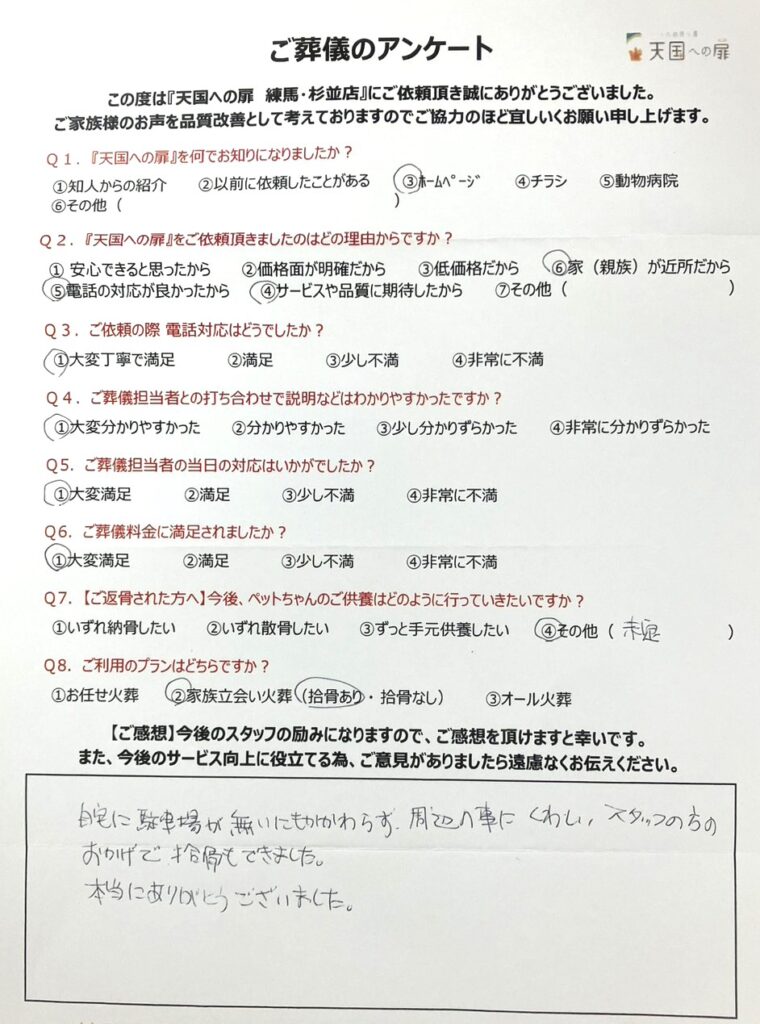 ご葬儀のアンケート
天国への扉
この度は『天国への扉 練馬・杉並店』にご依頼頂き誠にありがとうございました。
ご家族様のお声を品質改善として考えておりますのでご協力のほど宜しいくお願い申し上げます。
Q1.『天国への扉』を何でお知りになりましたか？
①知人からの紹介 ②以前に依頼したことがある ③ﾎｰﾑﾍﾟｰｼﾞ ④チラシ ⑤動物病院
⑥その他（ ）
Q2.『天国への扉』をご依頼頂きましたのはどの理由からですか？
① 安心できると思ったから ②価格面が明確だから ③低価格だから ⑥家（親族）が近所だから
⑤電話の対応が良かったから ④サービスや品質に期待したから ⑦その他（ ）
Q3．ご依頼の際 電話対応はどうでしたか？
①大変丁寧で満足 ②満足 ③少し不満 ④非常に不満
Q4．ご葬儀担当者との打ち合わせで説明などはわかりやすかったですか？
①大変分かりやすかった ②分かりやすかった ③少し分かりずらかった ④非常に分かりずらかった
Q5．ご葬儀担当者の当日の対応はいかがでしたか？
①大変満足 ②満足 ③少し不満 ④非常に不満
Q6．ご葬儀料金に満足されましたか？
①大変満足 ②満足 ③少し不満 ④非常に不満
Q7．【ご返骨された方へ】今後、ペットちゃんのご供養はどのように行っていきたいですか？
①いずれ納骨したい ②いずれ散骨したい ③ずっと手元供養したい ④その他（ 未定 ）
Q8．ご利用のプランはどちらですか？
①お任せ火葬 ②家族立会い火葬（拾骨あり・拾骨なし） ③オール火葬
【ご感想】今後のスタッフの励みになりますので、ご感想を頂けますと幸いです。
また、今後のサービス向上に役立てる為、ご意見がありましたら遠慮なくお伝えください。
自宅に駐車場が無いにもかかわらず、周辺の事にくわしいスタッフの方の
おかげで拾骨もできました。
本当にありがとうございました。